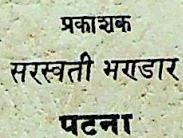 प्रकाशक
सरस्वती भण्डार
पटना